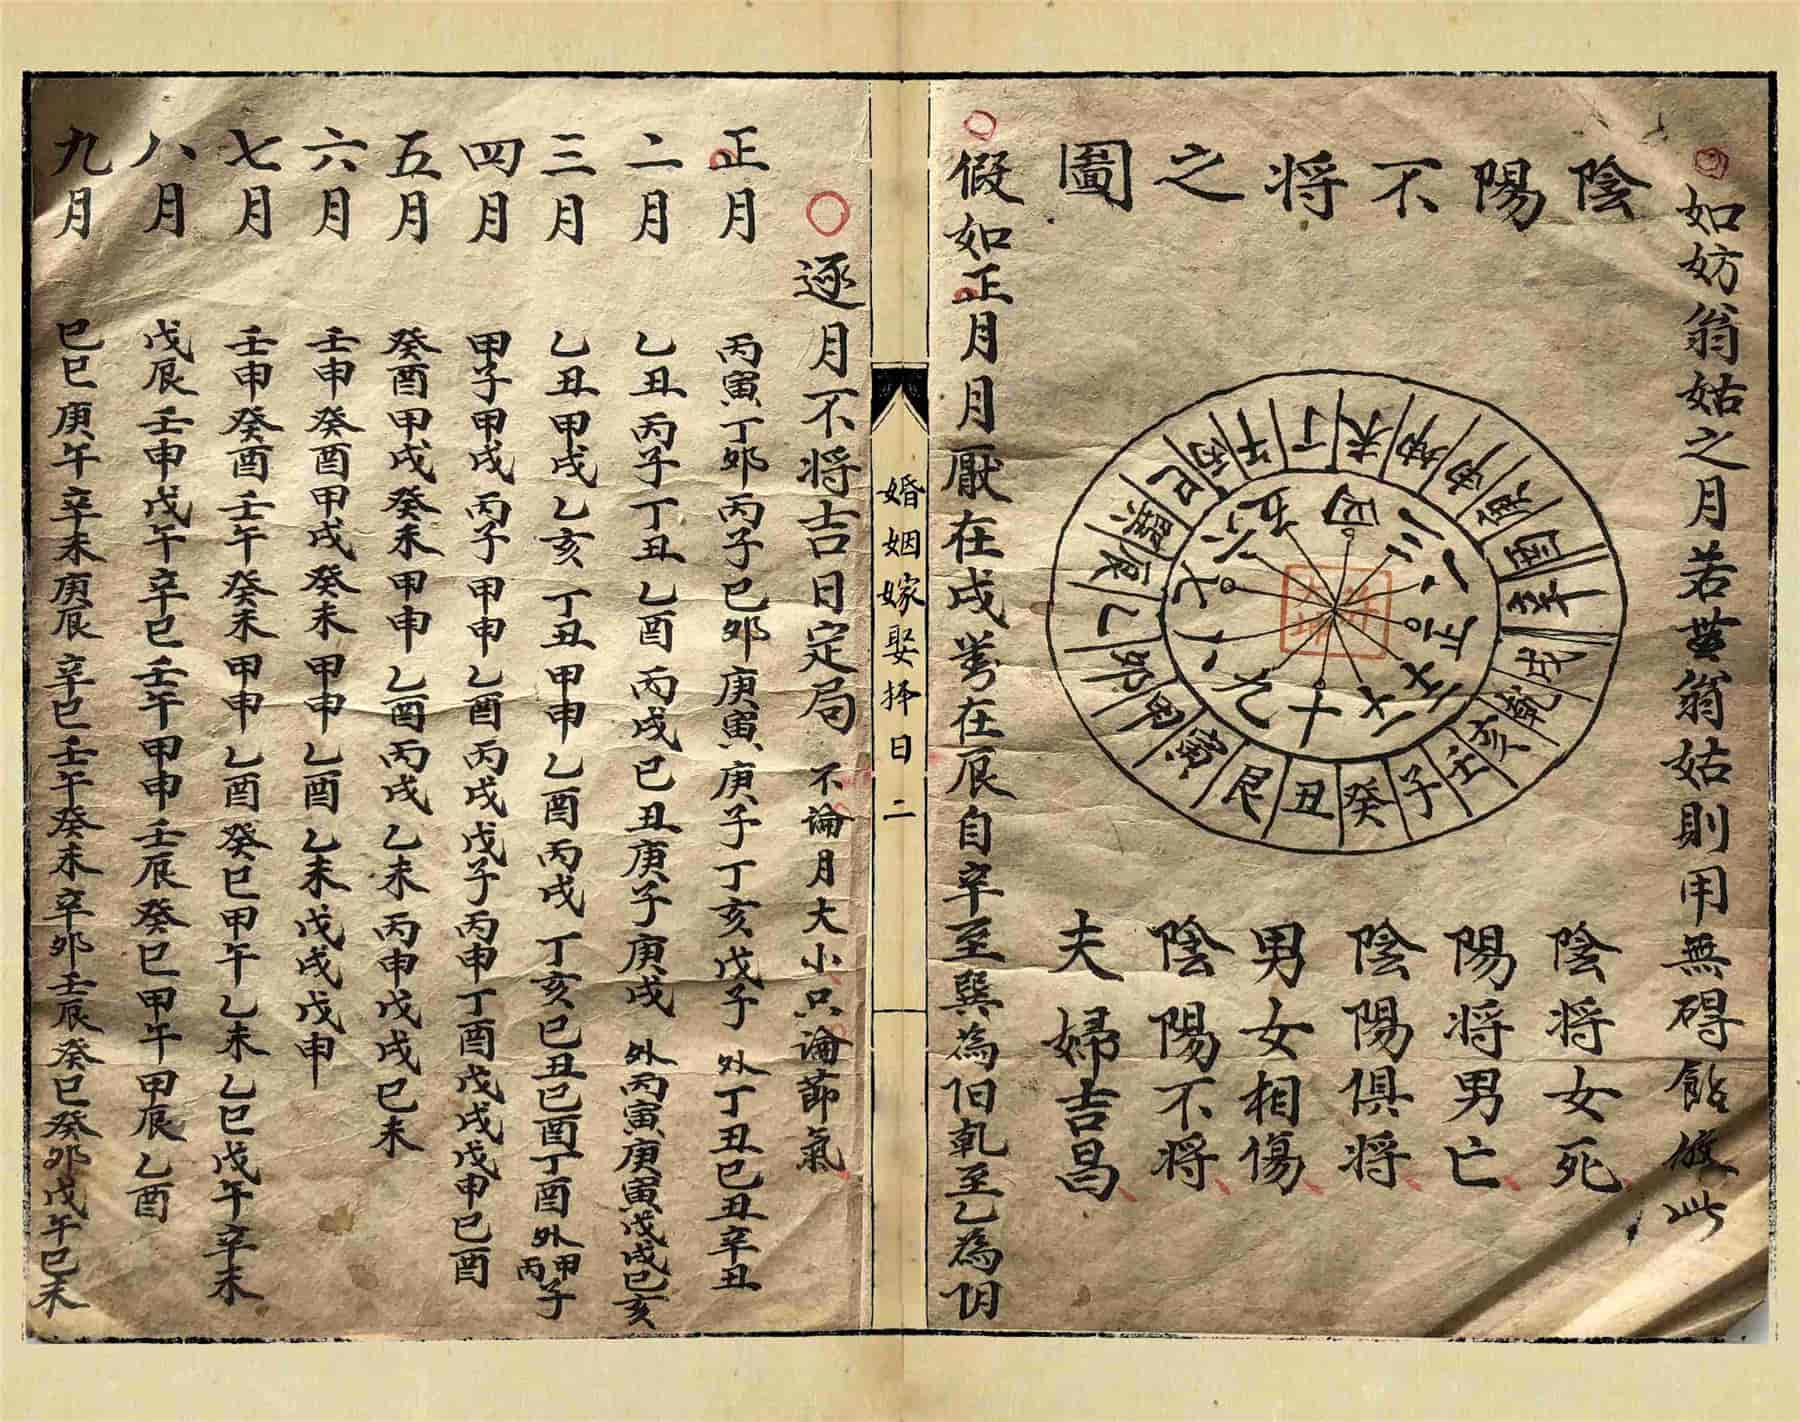 如妨翁姑之月若無翁姑則用無碍餘倣此
陰陽不将之圖
巳丙午丁未坤申庚酉辛戌乾亥壬子癸丑艮寅甲卯乙辰巽
陰将女死
陽将男亡
陰陽俱将
男女相傷
陰陽不将
夫婦吉昌
假如正月月厭在戌對在辰自辛至巽為阳乾至乙為阴
婚姻嫁娶择日 二
逐月不将吉日定局 不論月大小只論節氣
正月 丙寅丁卯丙子己卯庚寅庚子丁亥戊子 外丁丑己丑辛丑
二月 乙丑丙子丁丑乙酉丙戌己丑庚子庚戌 外丙寅庚寅戊戌己亥
三月 乙丑甲戌乙亥丁丑甲申乙酉丙戌丁亥己丑己酉丁酉外甲子丙
四月 甲子甲戌丙子甲申乙酉丙戌戊子丙申丁酉戊戌戊申己酉
五月 癸酉甲戌癸未甲申乙酉丙戌乙未丙申戊戌己未
六月 壬申癸酉甲戌癸未甲申乙酉乙未戊戌戊申
七月 壬申癸酉壬午癸未甲申乙酉癸巳甲午乙未乙巳戊午辛未
八月 戊辰壬申戊午辛巳壬午甲申壬辰癸巳甲午甲辰乙酉
九月 己巳庚午辛未庚辰辛巳壬午癸未辛卯壬辰癸巳癸卯戊午己未